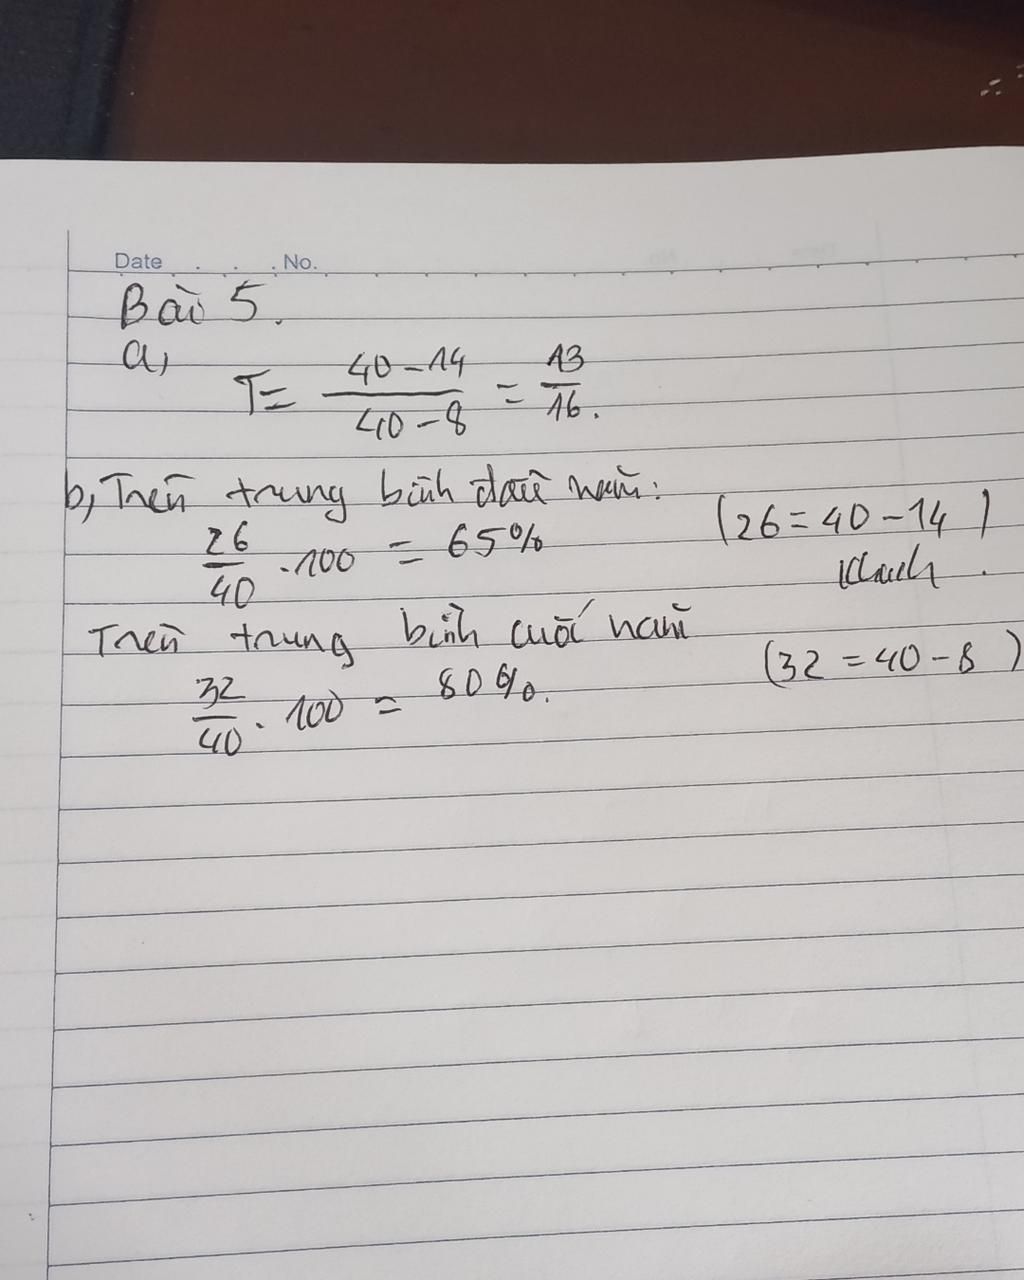 Date . . . No.
Bài 5.
a,
T = \frac{40-14}{40-8} = \frac{13}{16}.
b, Trên trung bình đầu năm:
\frac{26}{40} . 100 = 65% (26 = 40 - 14)
Trên trung bình cuối năm
\frac{32}{40} . 100 = 80%. (32 = 40 - 8)